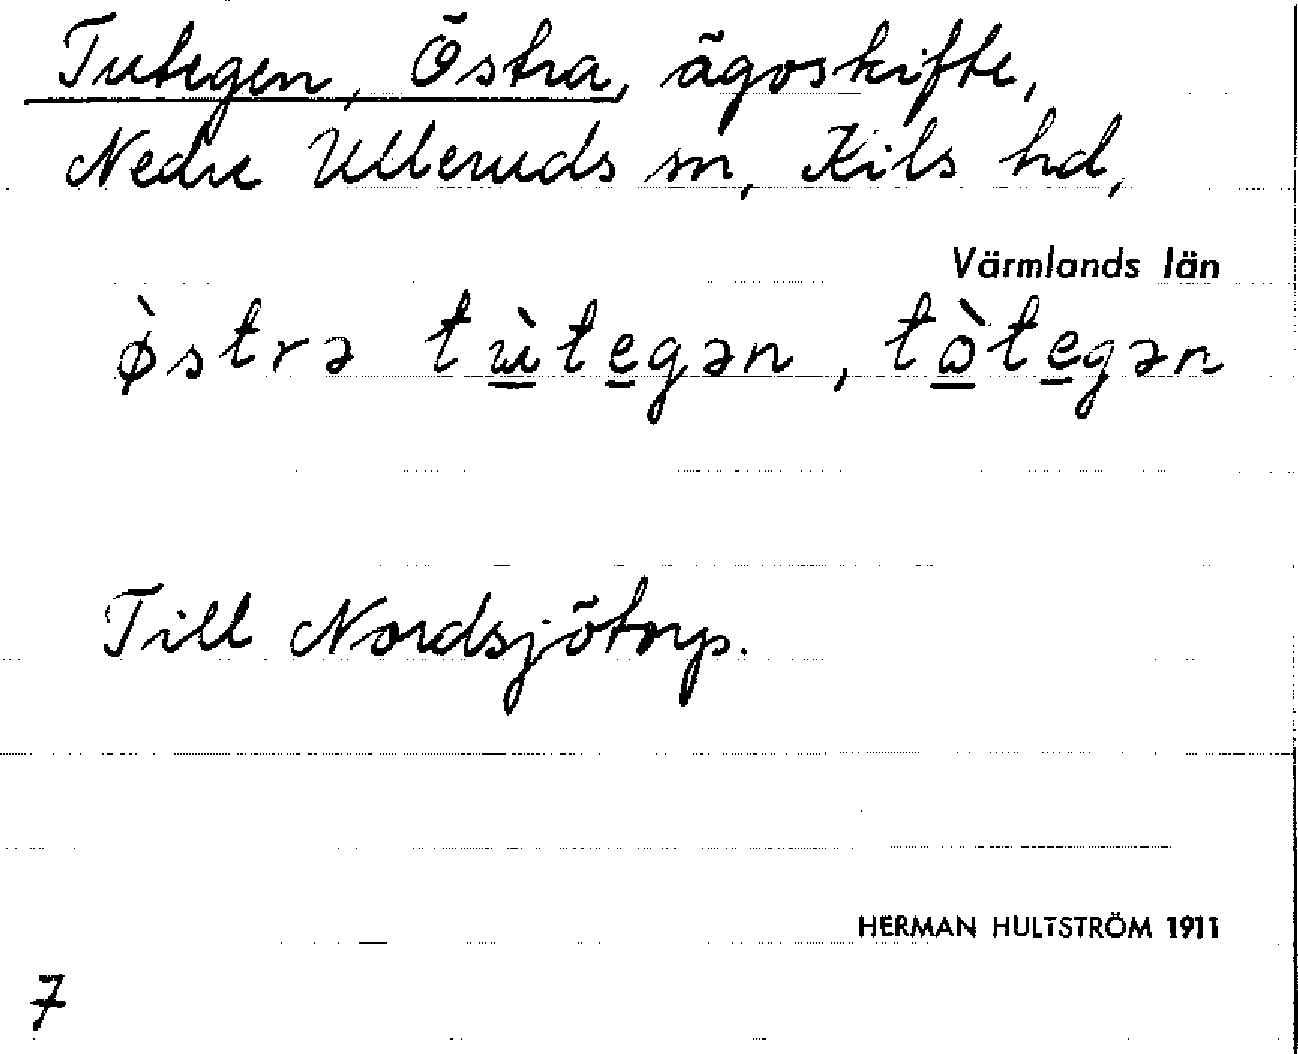 Tutegen, Östra, ägoskifte,
Nedre Ulleruds sn, Kils hd,
Värmlands län
ø̀strə tɯ̲̀te̲gən, tὼ̲te̲gən
Till Nordsjötorp.
HERMAN HULTSTRÖM 1911
7